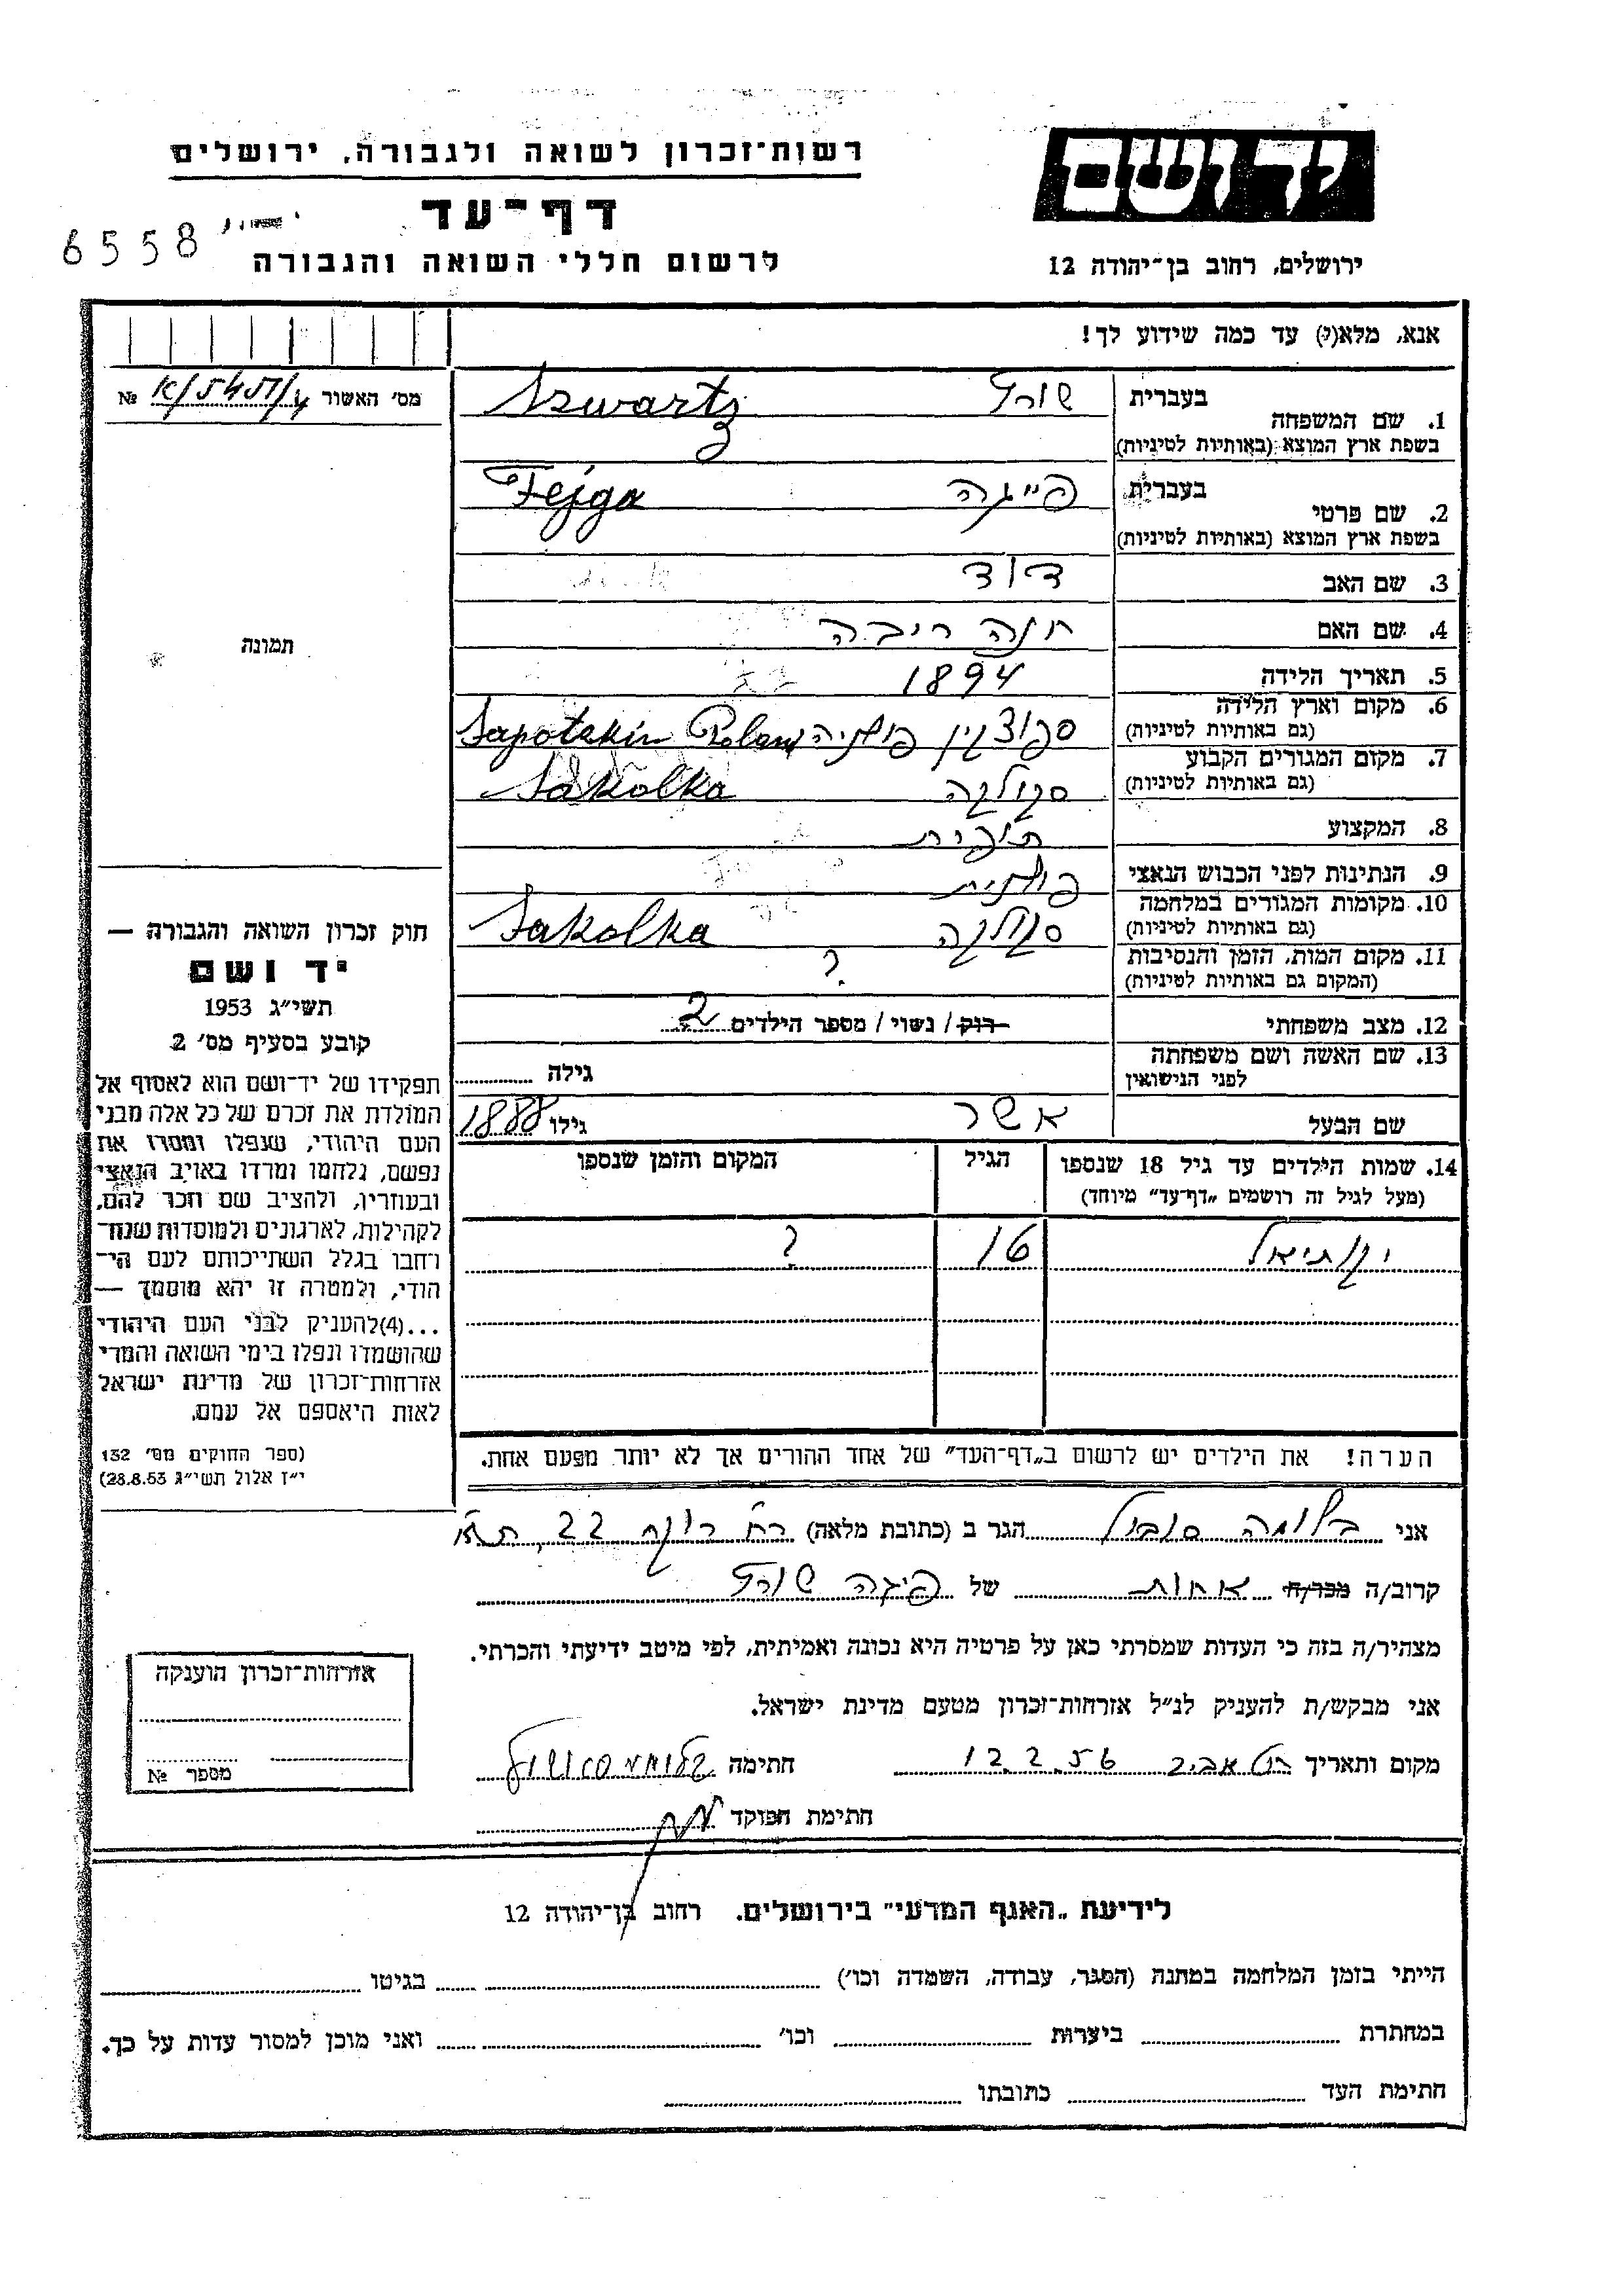 יד ושם
ירושלים, רחוב בן־יהודה 12
רשות־זכרון לשואה ולגבורה, ירושלים
דף־עד
לרשום חללי השואה והגבורה
6558
אנא, מלא(י) עד כמה שידוע לך!
מס' האשור № K/5451/4
תמונה
חוק זכרון השואה והגבורה —
יד ושם
תשי״ג 1953
קובע בסעיף מס' 2
תפקידו של יד־ושם הוא לאסוף אל
המולדת את זכרם של כל אלה מבני
העם היהודי, שנפלו ומסרו את
נפשם, נלחמו ומרדו באויב הנאצי
ובעוזריו, ולהציב שם וזכר להם,
לקהילות, לארגונים ולמוסדות שנח־
רחבו בגלל השתייכותם לעם הי־
הודי, ולמטרה זו יהא מוסמך —
...(4)להעניק לבני העם היהודי
שהושמדו ונפלו בימי השואה והמרי
אזרחות־זכרון של מדינת ישראל
לאות היאספם אל עמם.
(ספר החוקים מס' 132
י״ז אלול תשי״ג 28.8.53)
בעברית שורץ Szwartz
1. שם המשפחה
בשפת ארץ המוצא (באותיות לטיניות)
בעברית פייגה Fejga
2. שם פרטי
בשפת ארץ המוצא (באותיות לטיניות)
3. שם האב דוד
4. שם האם חנה ריבה
5. תאריך הלידה 1894
6. מקום וארץ הלידה ספוצקין פולניה Sapotzkin
(גם באותיות לטיניות)
7. מקום המגורים הקבוע סקולקה Sakolka
(גם באותיות לטיניות)
8. המקצוע תופרת
9. הנתינות לפני הכבוש הנאצי פולנית
10. מקומות המגורים במלחמה סקולקה Sakolka
(גם באותיות לטיניות)
11. מקום המות, הזמן והנסיבות ?
(המקום גם באותיות לטיניות)
12. מצב משפחתי רוק / נשוי / מספר הילדים 2
13. שם האשה ושם משפחתה גילה
לפני הנישואין
שם הבעל אשר גילו 1888
14. שמות הילדים עד גיל 18 שנספו הגיל המקום והזמן שנספו
(מעל לגיל זה רושמים „דף־עד״ מיוחד)
יקותיאל 16 ?
הערה! את הילדים יש לרשום ב„דף־העד״ של אחד ההורים אך לא יותר מפעם אחת.
אני בלומה סובול הגר ב (כתובת מלאה) רח' 22, ת״א
קרוב/ה מכר/ה אחות של פיגה שורץ
מצהיר/ה בזה כי העדות שמסרתי כאן על פרטיה היא נכונה ואמיתית, לפי מיטב ידיעתי והכרתי.
אני מבקש/ת להעניק לנ״ל אזרחות־זכרון מטעם מדינת ישראל.
מקום ותאריך תל אביב 12.2.56 חתימה
חתימת הפוקד
אזרחות־זכרון הוענקה
מספר №
לידיעת „האגף המדעי״ בירושלים. רחוב בן־יהודה 12
הייתי בזמן המלחמה במחנה (הסגר, עבודה, השמדה וכו') בגיטו
במחתרת ביערות וכו' ואני מוכן למסור עדות על כך.
חתימת העד כתובתו